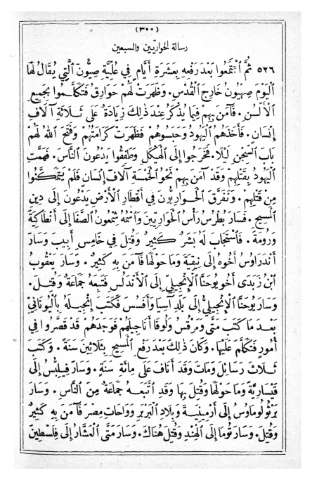 (٣٠٠)
رسالة الحواريّين والسبعين
٥٢٦ ثُمَّ ٱجْتَمَعُوا بَعْدَ رَفْعِهِ بِعَشَرَةِ أَيَّامٍ فِي عُلِّيَّةِ صِهْيُونَ ٱلَّتِي يُقَالُ لَهَا
ٱلْيَوْمَ صِهْيُونُ خَارِجَ ٱلْقُدْسِ. وَظَهَرَتْ لَهُمْ خَوَارِقُ فَتَكَلَّمُوا بِجَمِيعِ
ٱلْأَلْسُنِ. فَآمَنَ بِهِمْ فِيمَا يُذْكَرُ عِنْدَ ذٰلِكَ زِيَادَةٌ عَلَى ثَلَاثَةِ آلَافِ
إِنْسَانٍ. فَأَخَذَهُمُ ٱلْيَهُودُ وَحَبَسُوهُمْ فَظَهَرَتْ كَرَامَتُهُمْ وَفَتَحَ ٱللهُ لَهُمْ
بَابَ ٱلسِّجْنِ لَيْلًا. فَخَرَجُوا إِلَى ٱلْهَيْكَلِ وَطَفِقُوا يَدْعُونَ ٱلنَّاسَ. فَهَمَّتِ
ٱلْيَهُودُ بِقَتْلِهِمْ وَقَدْ آمَنَ بِهِمْ نَحْوُ ٱلْخَمْسَةِ آلَافِ إِنْسَانٍ فَلَمْ يَتَمَكَّنُوا
مِنْ قَتْلِهِمْ. وَتَفَرَّقَ ٱلْحَوَارِيُّونَ فِي أَقْطَارِ ٱلْأَرْضِ يَدْعُونَ إِلَى دِينِ
ٱلْمَسِيحِ. فَسَارَ بُطْرُسُ رَأْسُ ٱلْحَوَارِيِّينَ وَٱسْمُهُ شِمْعُونُ ٱلصَّفَا إِلَى أَنْطَاكِيَةَ
وَرُومِيَةَ. فَٱسْتَجَابَ لَهُ بَشَرٌ كَثِيرٌ وَقُتِلَ فِي خَامِسِ أَبِيبَ وَسَارَ
أَنْدَرَاوُسُ أَخُوهُ إِلَى نِيقِيَةَ وَمَا حَوْلَهَا فَآمَنَ بِهِ كَثِيرٌ. وَسَارَ يَعْقُوبُ
ٱبْنُ زَبَدَى أَخُو يُوحَنَّا ٱلْإِنْجِيلِيِّ إِلَى ٱلْأَنْدَلُسِ فَتَبِعَهُ جَمَاعَةٌ وَقُتِلَ.
وَسَارَ يُوحَنَّا ٱلْإِنْجِيلِيُّ إِلَى بِلَادِ آسِيَا وَأَفَسُسَ فَكَتَبَ إِنْجِيلَهُ بِٱلْيُونَانِيِّ
بَعْدَ مَا كَتَبَ مَتَّى وَمَرْقُسُ وَلُوقَا أَنَاجِيلَهُمْ فَوَجَدَهُمْ قَدْ قَصَّرُوا فِي
أُمُورٍ فَتَكَلَّمَ عَلَيْهَا. وَكَانَ ذٰلِكَ بَعْدَ رَفْعِ ٱلْمَسِيحِ بِثَلَاثِينَ سَنَةً. وَكَتَبَ
ثَلَاثَ رَسَائِلَ وَمَاتَ وَقَدْ أَنَافَ عَلَى مِائَةِ سَنَةٍ. وَسَارَ فِيلِبُّسُ إِلَى
قَيْسَارِيَّةَ وَمَا حَوْلَهَا وَقُتِلَ بِهَا وَقَدِ ٱتَّبَعَهُ جَمَاعَةٌ مِنَ ٱلنَّاسِ. وَسَارَ
بَرْثُولُومَاوُسُ إِلَى أَرْمِينِيَةَ وَبِلَادِ ٱلْبَرْبَرِ وَوَاحَاتِ مِصْرَ فَآمَنَ بِهِ كَثِيرٌ
وَقُتِلَ. وَسَارَ تُومَا إِلَى ٱلْهِنْدِ وَقُتِلَ هُنَاكَ. وَسَارَ مَتَّى ٱلْعَشَّارُ إِلَى فِلَسْطِينَ